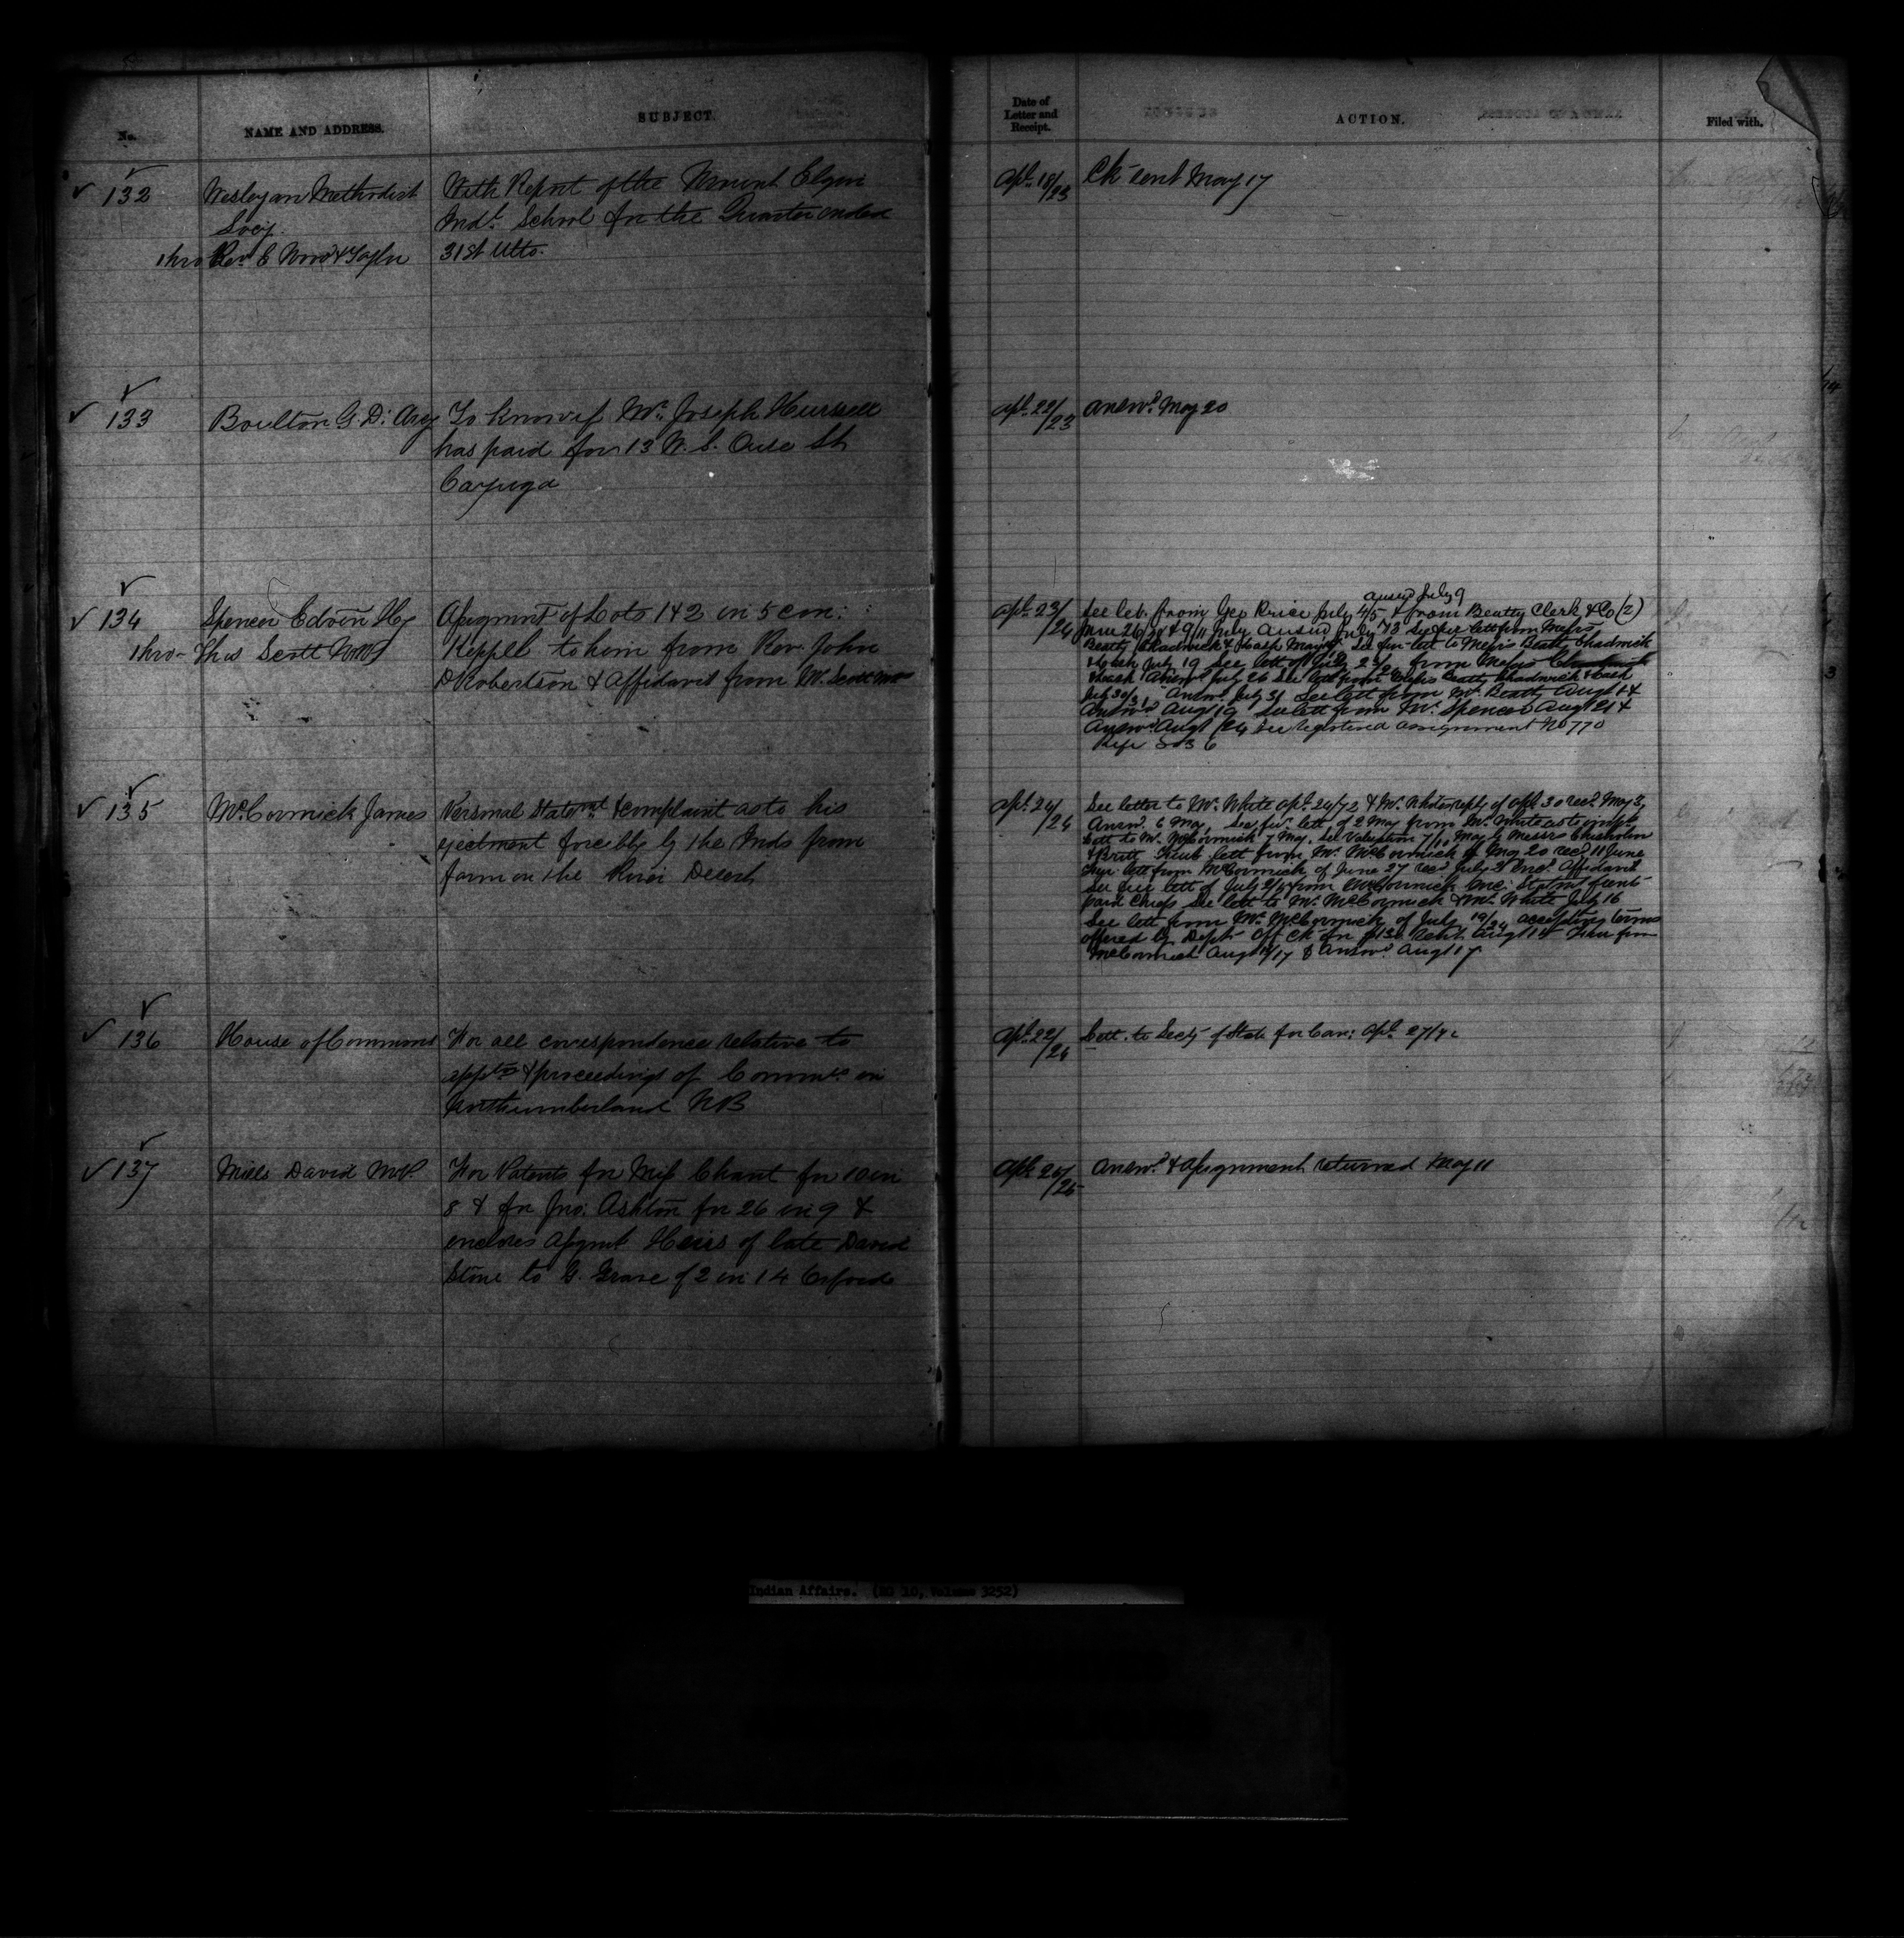 No.
NAME AND ADDRESS.
SUBJECT.
Date of
Letter and
Receipt.
ACTION.
Filed with.
132
Wesleyan Methodist
Socy.
thro Rev E Wood & Taylor
With Report of the Mount Elgin
Indl. School for the Quarter ended
31st Ulto.
Apl. 18/23
Ck sent May 17
133
Boulton G. D'Arcy
To know if Mr. Joseph
has paid for 13 W. S. Ouse St
Cayuga
Apl. 22/23
Answd. May 20
134
Spencer Edwin Hy
thro- Thos Scott
Assignmt of Lots 1 & 2 in 5 con:
Keppel to him from Rev. John
Robertson & Affidavit from W. Scott
Apl. 23/24
answd July 9
See let. from Geo Price July 4/5 & from Beatty Clerk & Co (2)
June 26 & 9/11 July answd July See lett from Messrs
Beatty Chadwick & See fur lett to Messrs Beatty Chadwick
July 19 See lett of July 23/ from Messrs
Answd July 26 See lett from Messrs Beatty Chadwick &
July 30/31 Answd July 31 See lett from Mr. Beatty Augt
Answd Aug 19 See lett from Mr. Spencer Aug 21 &
Answd Augt /24 See registered assignment No 770
135
McCormick James
Personal Statemt. & complaint as to his
ejectment forcibly by the Inds from
farm on the River Desert
Apl. 24/24
See letter to Mr. White Apl. 24/72 & Mr. White reply of Apl 30 recd. May 3,
Answd. 6 May. See fur. lett of 2 May from Mr. White as to
Lett to Mr. McCormick 7 May. See Valuation 7/10 May by Messrs Chisholm
& Britt lett from Mr. McCormick of May 20 recd 11 June
Fur. lett from McCormick of June 27 recd July 2 Enc. Affidavit
See fur lett of July from McCormick Enc: Statmt
Chiefs See lett to Mr. McCormick & Mr. White July 16
See lett from Mr. McCormick of July 19/24 accepting terms
offered by Dept. Off Ck for Augt 14 from
McCormick Augt /17 & Answd. Augt 17
136
House of Commons
For all correspondence relative to
apptmt & proceedings of Commrs. in
Northumberland N B
Apl. 22/24
Lett. to Secy of State for Can: Apl. 27/72
137
Mills David M.P.
For Patents for Miss Chant for 10 in
8 & for Jno: Ashton for 26 in 9 &
encloses Assgnmt Heirs of late David
Stone to G. of 2 in 14 Orford
Apl 24/25
Answd. & assignment returned May 11
Indian Affairs. (RG 10, Volume 3252)